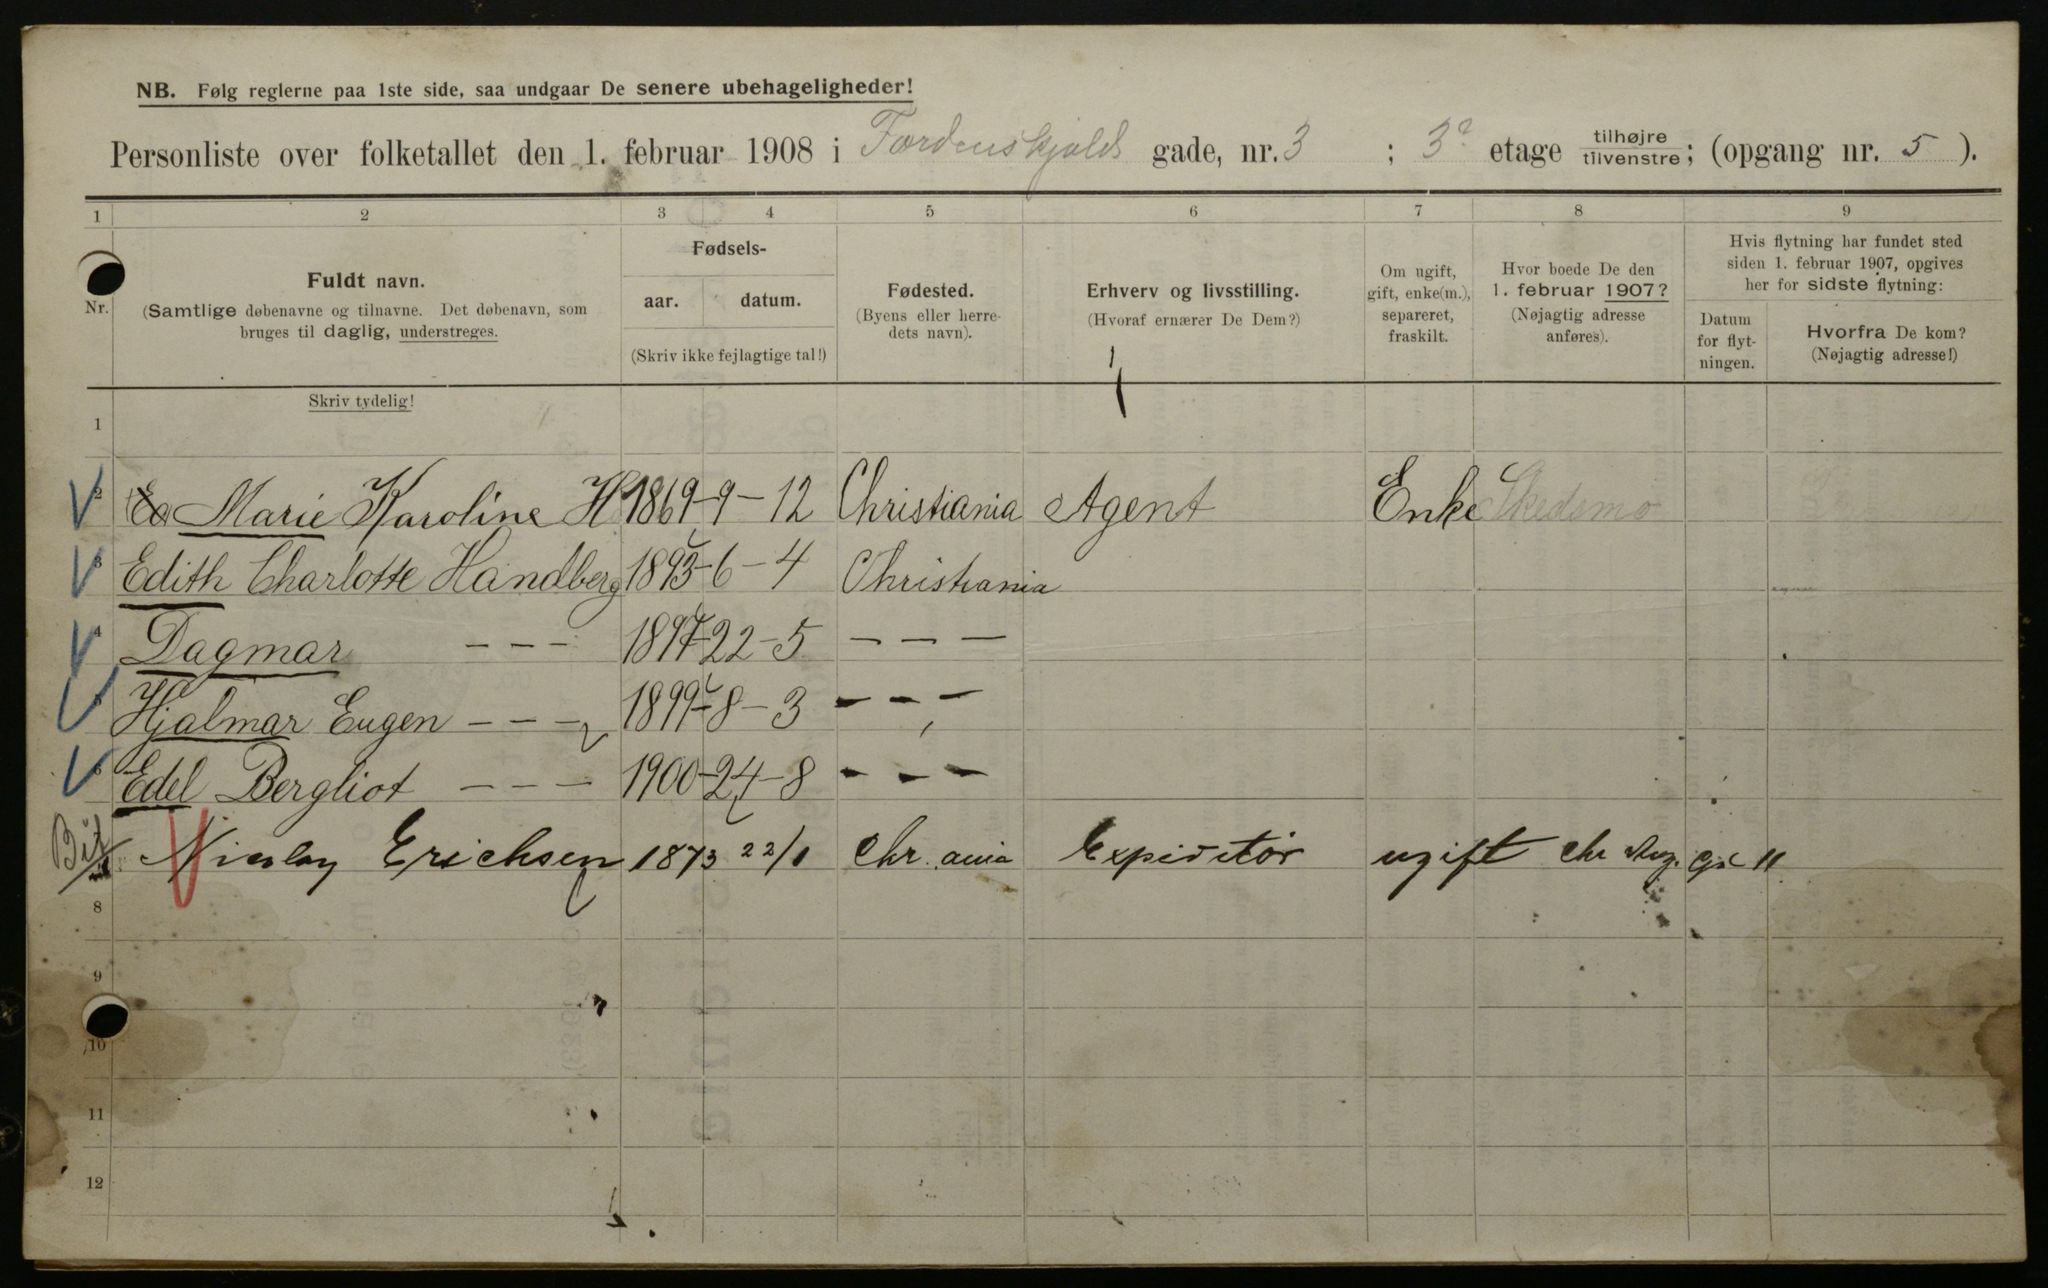 NB. Følg reglerne paa 1ste side, saa undgaar De senere ubehageligheder!
Personliste over folketallet den 1. februar 1908 i Tordenskjolds gade, nr. 3 ; 3 etage tilhøjre tilvenstre; (opgang nr. 5 ).
1 2 3 4 5 6 7 8 9
Nr.
Fuldt navn.
(Samtlige døbenavne og tilnavne. Det døbenavn, som
bruges til daglig, understreges.
Skriv tydelig!
Fødsels-
aar. datum.
(Skriv ikke fejlagtige tal!)
Fødested.
(Byens eller herre-
dets navn).
Erhverv og livsstilling.
(Hvoraf ernærer De Dem?)
Om ugift,
gift, enke(m.),
separeret,
fraskilt.
Hvor boede De den
1. februar 1907?
(Nøjagtig adresse
anføres).
Hvis flytning har fundet sted
siden 1. februar 1907, opgives
her for sidste flytning:
Datum
for flyt-
ningen.
Hvorfra De kom?
(Nøjagtig adresse!)
1
2 Marie Karoline H 1869-9-12 Christiania Agent Enke Skedsmo
3 Edith Charlotte Handberg 1895-6-4 Christiania
4 Dagmar - - - 1897-22-5 - - -
5 Hjalmar Eugen - - - 1899-8-3 - - -
6 Edel Bergliot - - - 1900-24-8 - - -
Nicolay Erichsen 1873 22/1 Chr.ania Expeditør ugift Chr Aug. Gd 11
8
9
10
11
12